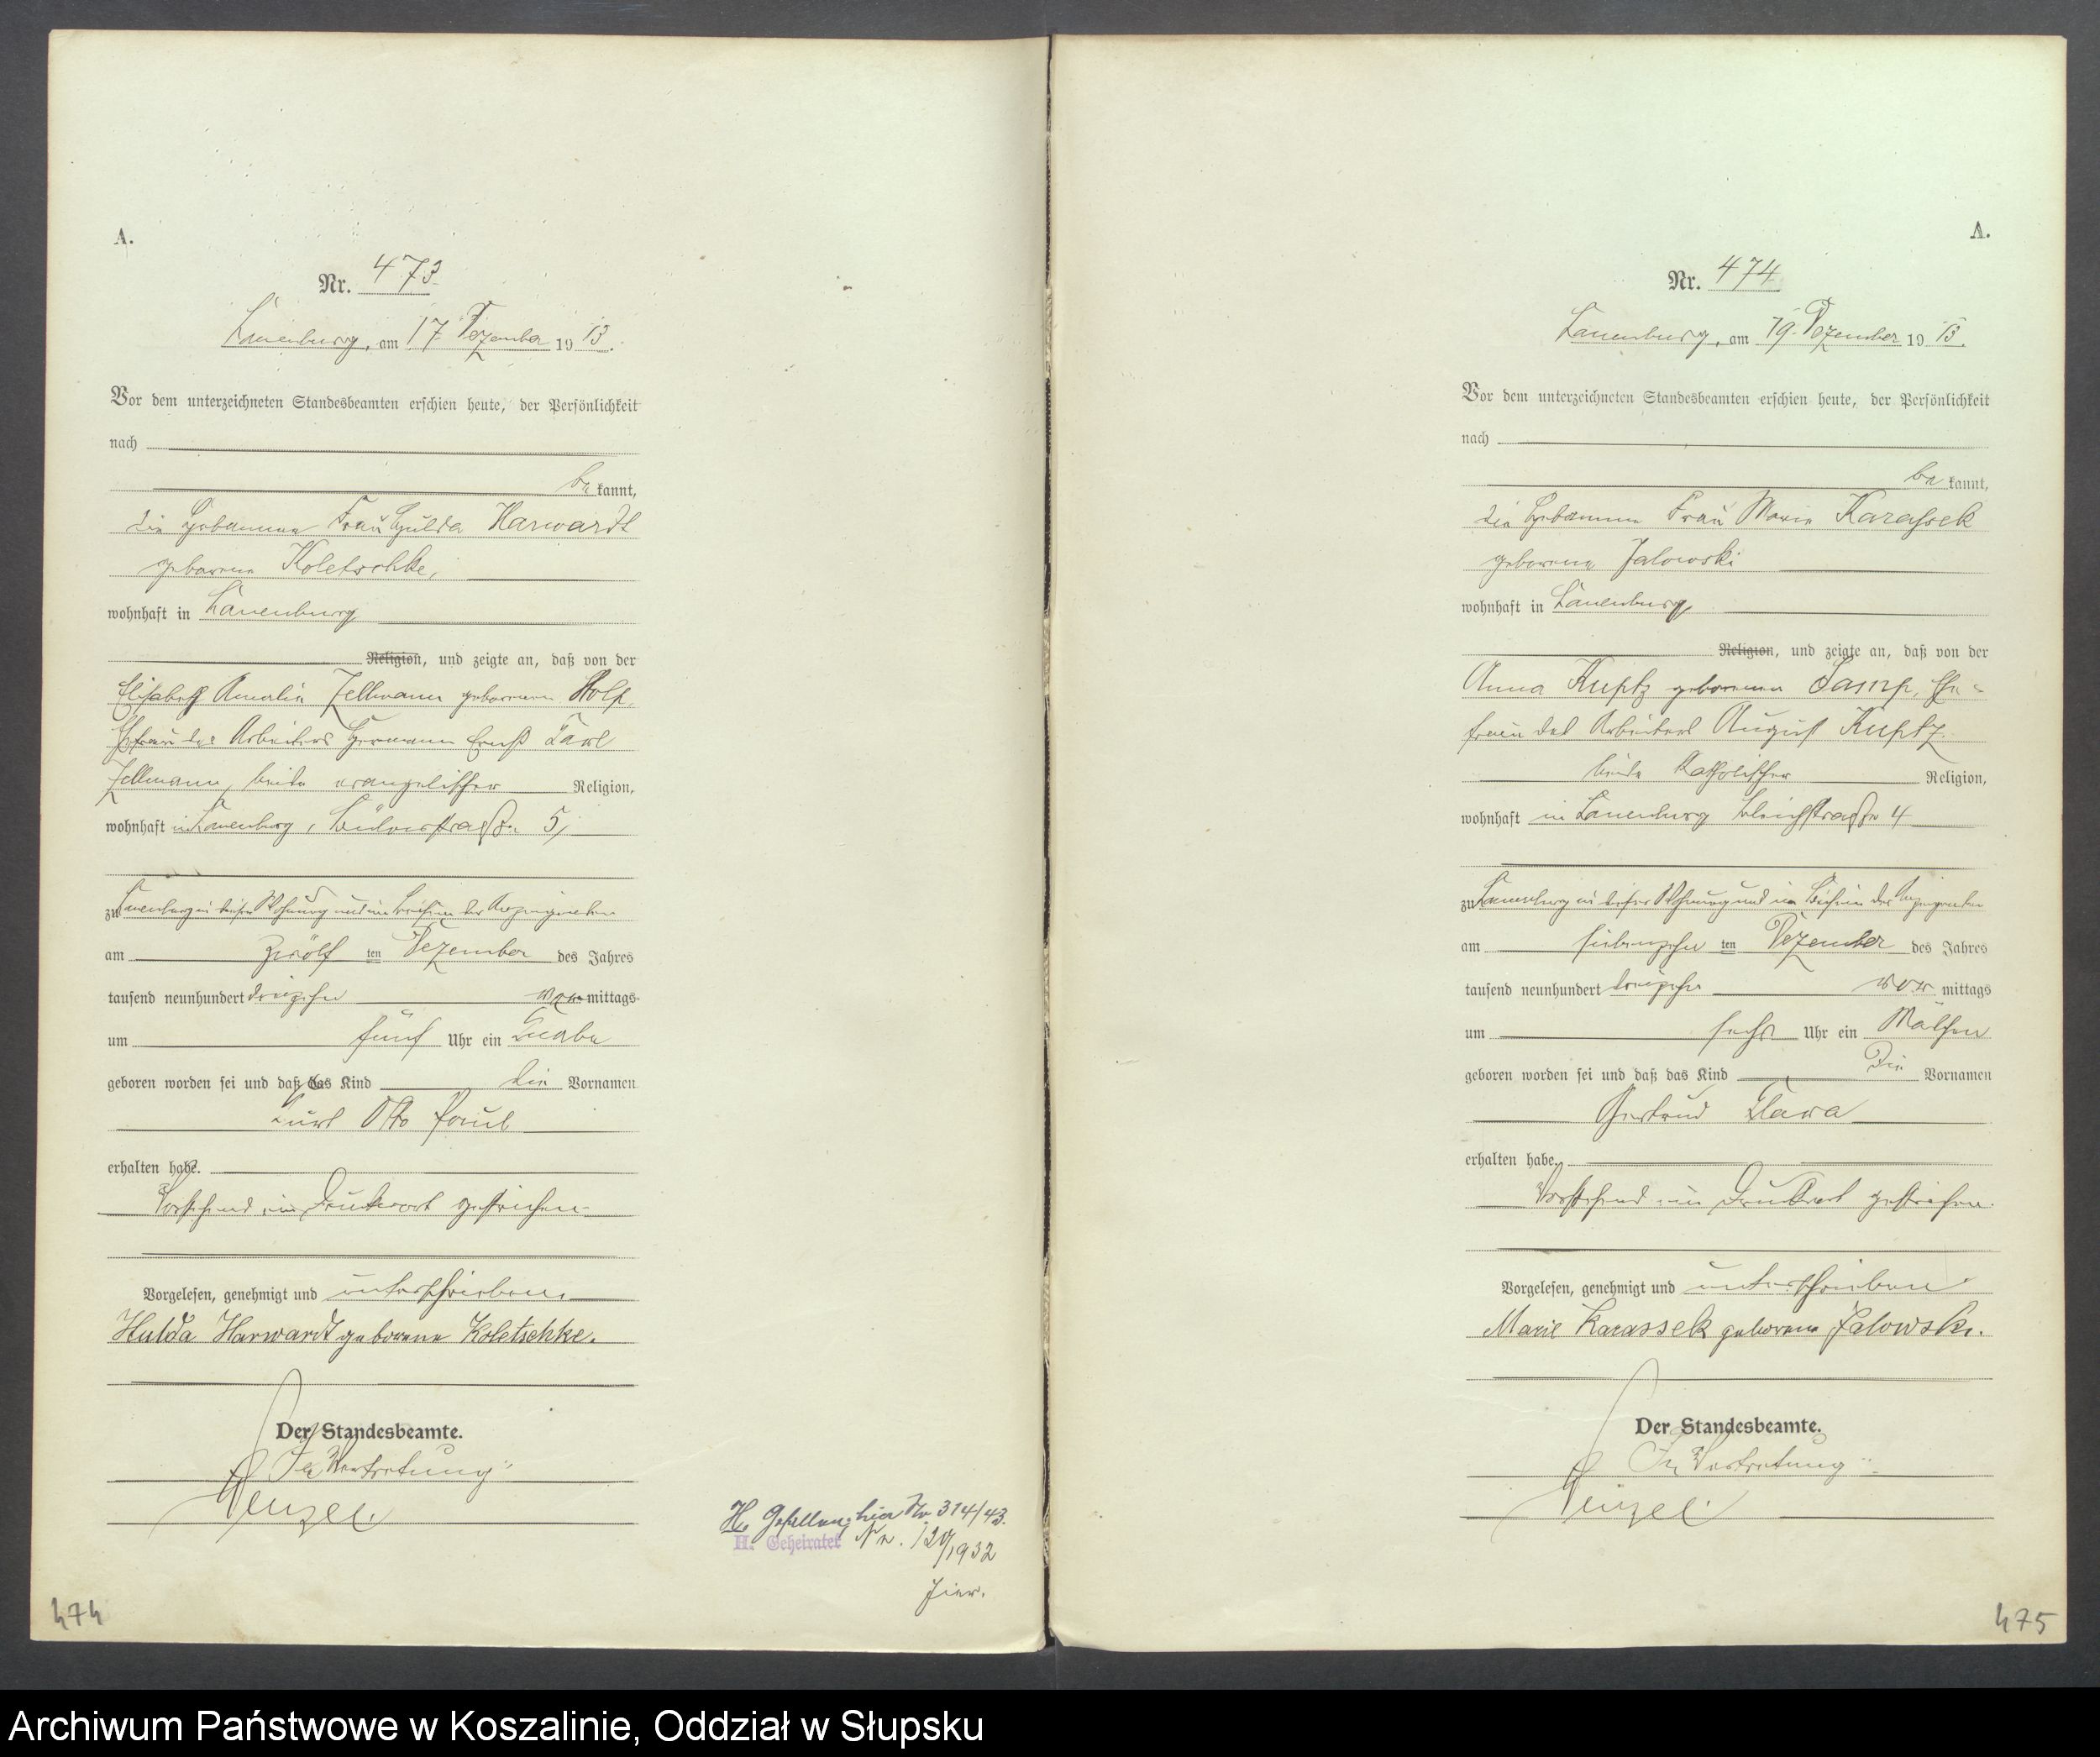 A.
Nr. 473
Lauenburg, am 17. Dezember 1913.
Vor dem unterzeichneten Standesbeamten erschien heute, der Persönlichkeit
nach
bekannt,
die Hebamme Frau Hulda Harwardt
geborene Koletschke,
wohnhaft in Lauenburg
Religion, und zeigte an, daß von der
Elisabeth Amalie Zellmann geborenen
Ehefrau des Arbeiters Hermann Ernst Carl
Zellmann, beide evangelischer Religion,
wohnhaft in Lauenburg, Bülowstraße 5,
zu Lauenburg in dieser Wohnung und im Beisein der Anzeigenden
am zwölf ten Dezember des Jahres
tausend neunhundert dreizehn mittags
um fünf Uhr ein Knabe
geboren worden sei und daß das Kind die Vornamen
Kurt Otto Paul
erhalten habe.
Vorstehend ein Druckwort gestrichen.
Vorgelesen, genehmigt und unterschrieben.
Hulda Harwardt geborene Koletschke.
Der Standesbeamte.
In Vertretung
Wenzel
H. Gefallen, hier Nr. 314/43.
H. Geheiratet Nr. 129/1932
hier.
474
A.
Nr. 474
Lauenburg, am 19. Dezember 1913.
Vor dem unterzeichneten Standesbeamten erschien heute, der Persönlichkeit
nach
bekannt,
die Hebamme Frau Marie Karassek
geborene Jalowski
wohnhaft in Lauenburg,
Religion, und zeigte an, daß von der
Anna Kuptz geborenen Ehe-
frau des Arbeiters August Kuptz
beide Katholischer Religion,
wohnhaft in Lauenburg Bleichstraße 4
zu Lauenburg in dieser Wohnung und im Beisein der Anzeigenden
am siebenzehn ten Dezember des Jahres
tausend neunhundert dreizehn vor mittags
um sechs Uhr ein Mädchen
geboren worden sei und daß das Kind die Vornamen
Gertrud Clara
erhalten habe.
Vorstehend ein Druckwort gestrichen.
Vorgelesen, genehmigt und unterschrieben
Marie Karassek geborene Jalowski.
Der Standesbeamte.
In Vertretung
Wenzel
475
Archiwum Państwowe w Koszalinie, Oddział w Słupsku